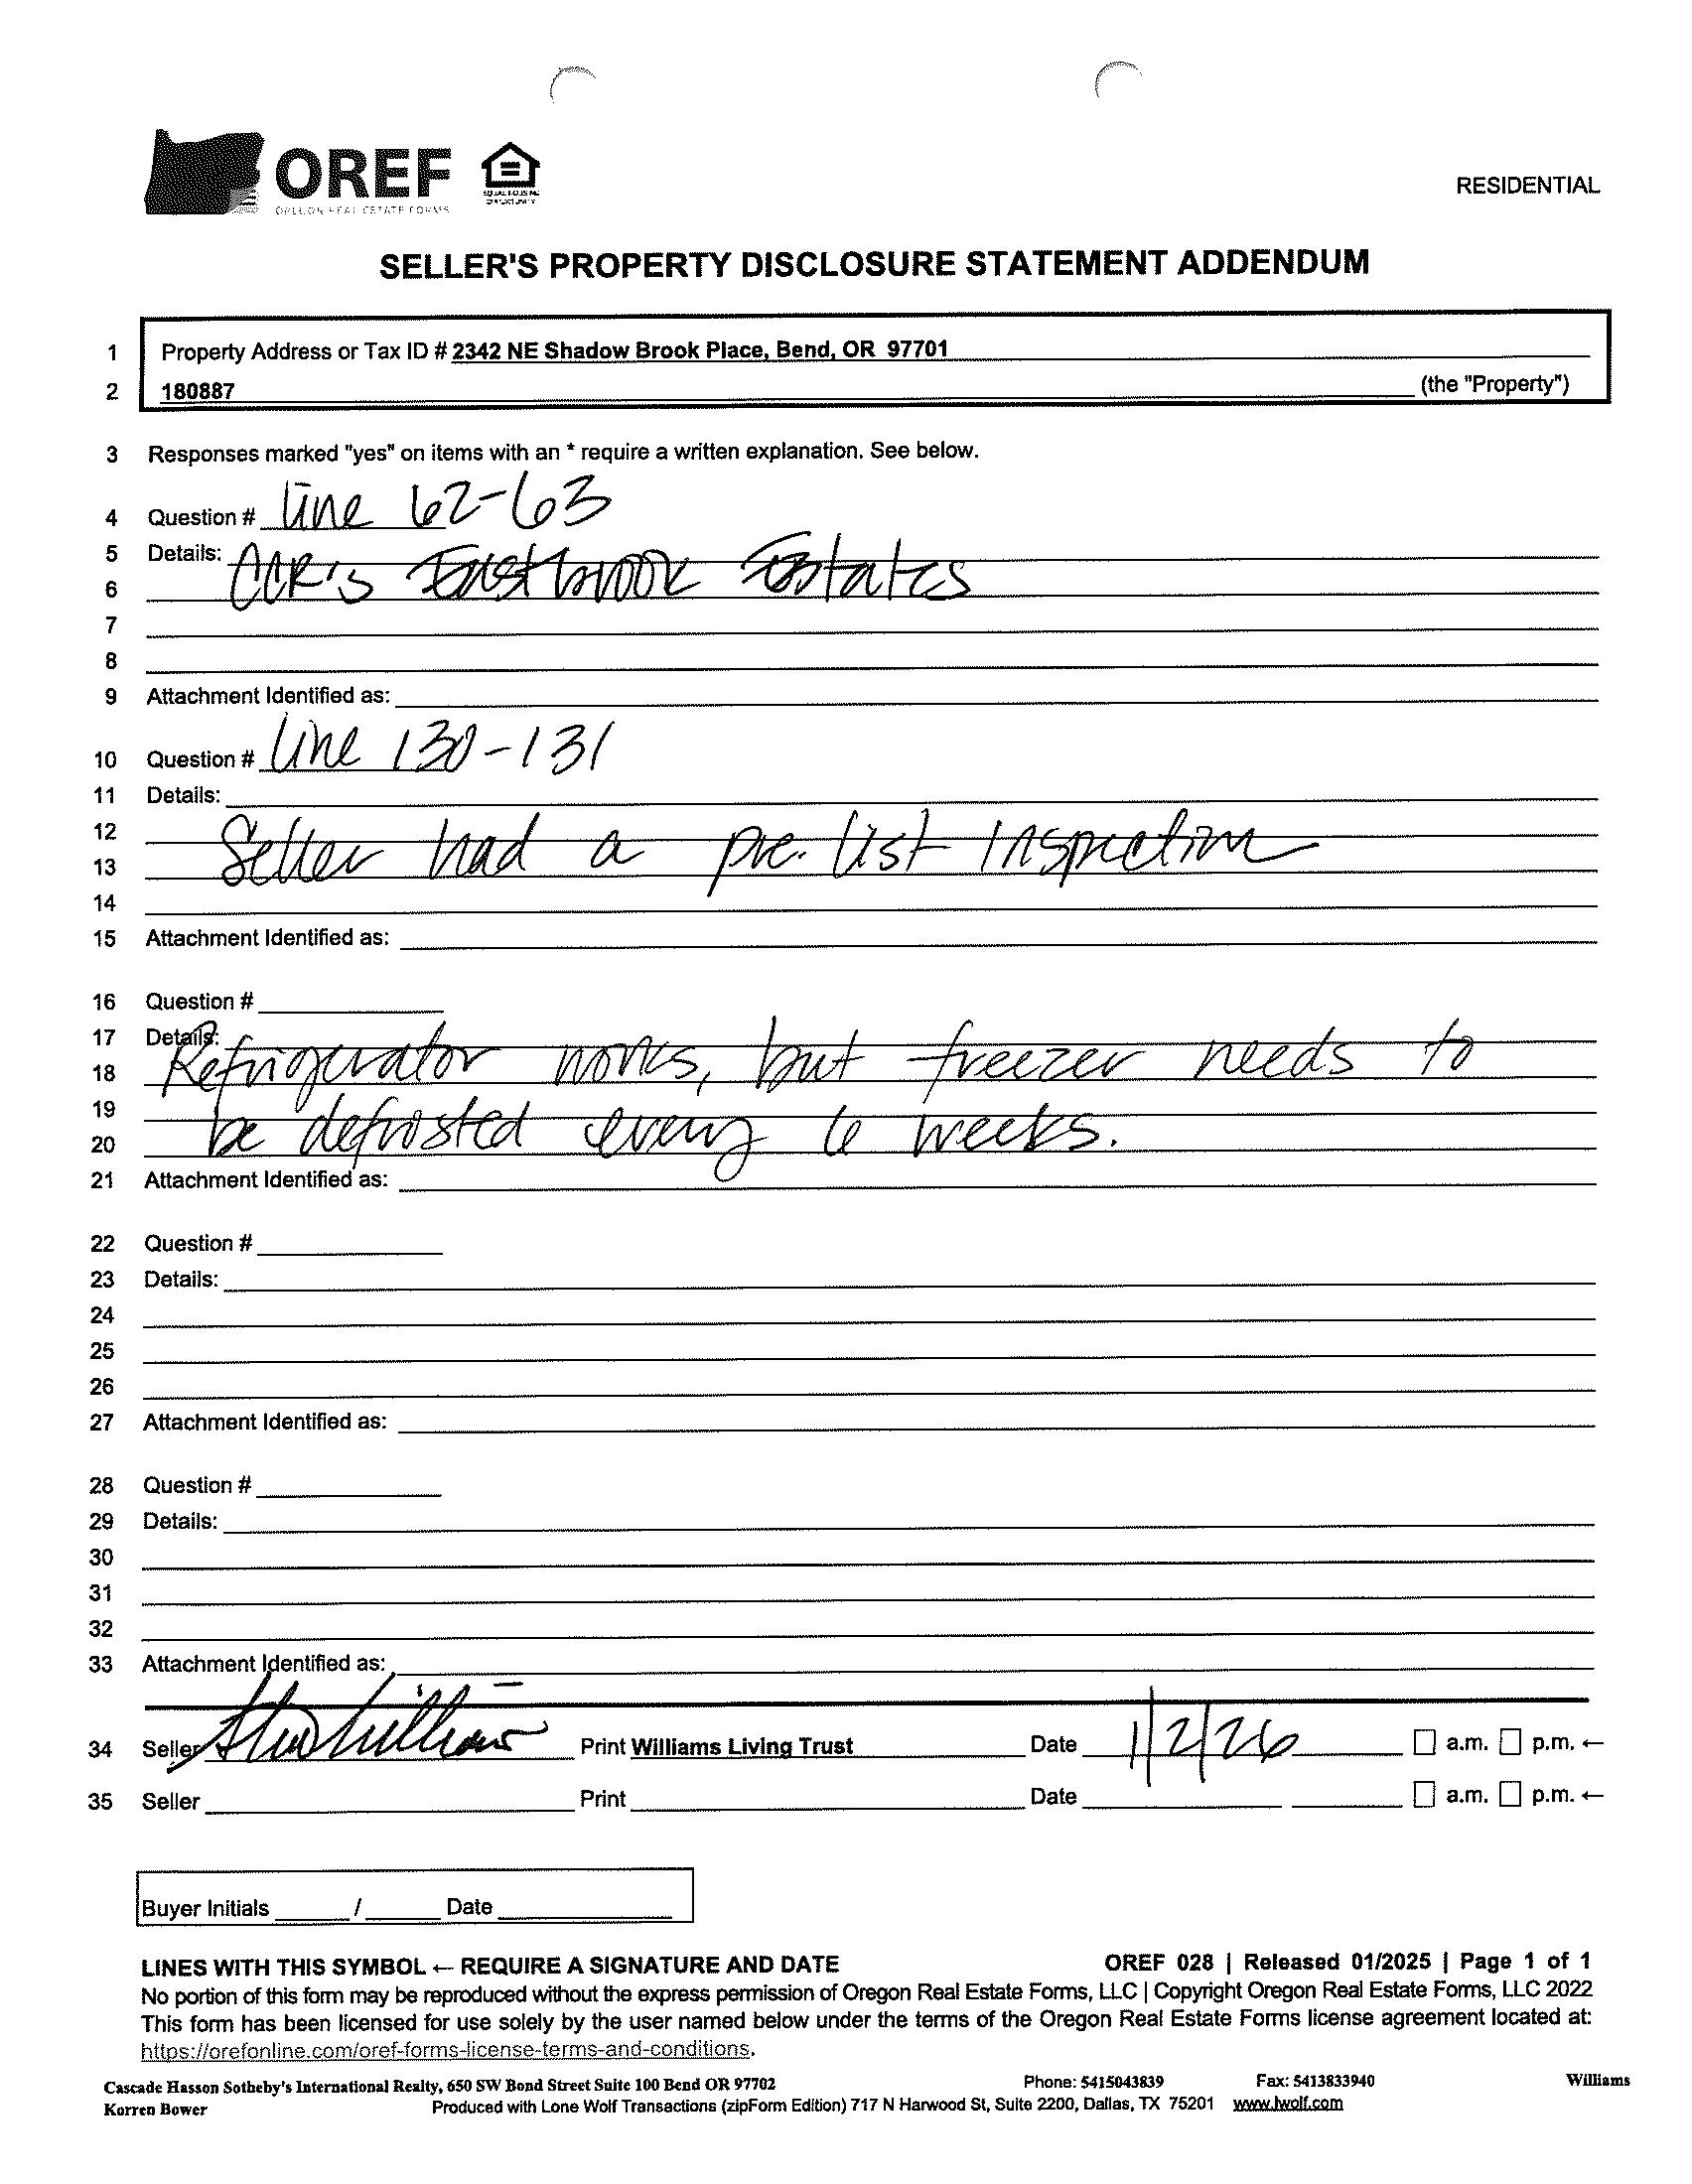 OREF
OREGON REAL ESTATE FORMS
EQUAL HOUSING
OPPORTUNITY
RESIDENTIAL
SELLER'S PROPERTY DISCLOSURE STATEMENT ADDENDUM
1 Property Address or Tax ID # 2342 NE Shadow Brook Place, Bend, OR 97701
2 180887 (the "Property")
3 Responses marked "yes" on items with an * require a written explanation. See below.
4 Question # Line 62-63
5 Details:
6 CCR's Eastbrook Estates
7
8
9 Attachment Identified as:
10 Question # Line 130-131
11 Details:
12
13 Seller had a pre. list Inspection
14
15 Attachment Identified as:
16 Question #
17 Details:
18 Refrigerator works, but freezer needs to
19
20 be defrosted every 6 weeks.
21 Attachment Identified as:
22 Question #
23 Details:
24
25
26
27 Attachment Identified as:
28 Question #
29 Details:
30
31
32
33 Attachment Identified as:
34 Seller Print Williams Living Trust Date 1/2/26 a.m. p.m. ←
35 Seller Print Date a.m. p.m. ←
Buyer Initials / Date
LINES WITH THIS SYMBOL ← REQUIRE A SIGNATURE AND DATE OREF 028 | Released 01/2025 | Page 1 of 1
No portion of this form may be reproduced without the express permission of Oregon Real Estate Forms, LLC | Copyright Oregon Real Estate Forms, LLC 2022
This form has been licensed for use solely by the user named below under the terms of the Oregon Real Estate Forms license agreement located at:
https://orefonline.com/oref-forms-license-terms-and-conditions.
Cascade Hasson Sotheby's International Realty, 650 SW Bond Street Suite 100 Bend OR 97702 Phone: 5415043839 Fax: 5413833940 Williams
Korren Bower Produced with Lone Wolf Transactions (zipForm Edition) 717 N Harwood St, Suite 2200, Dallas, TX 75201 www.lwolf.com